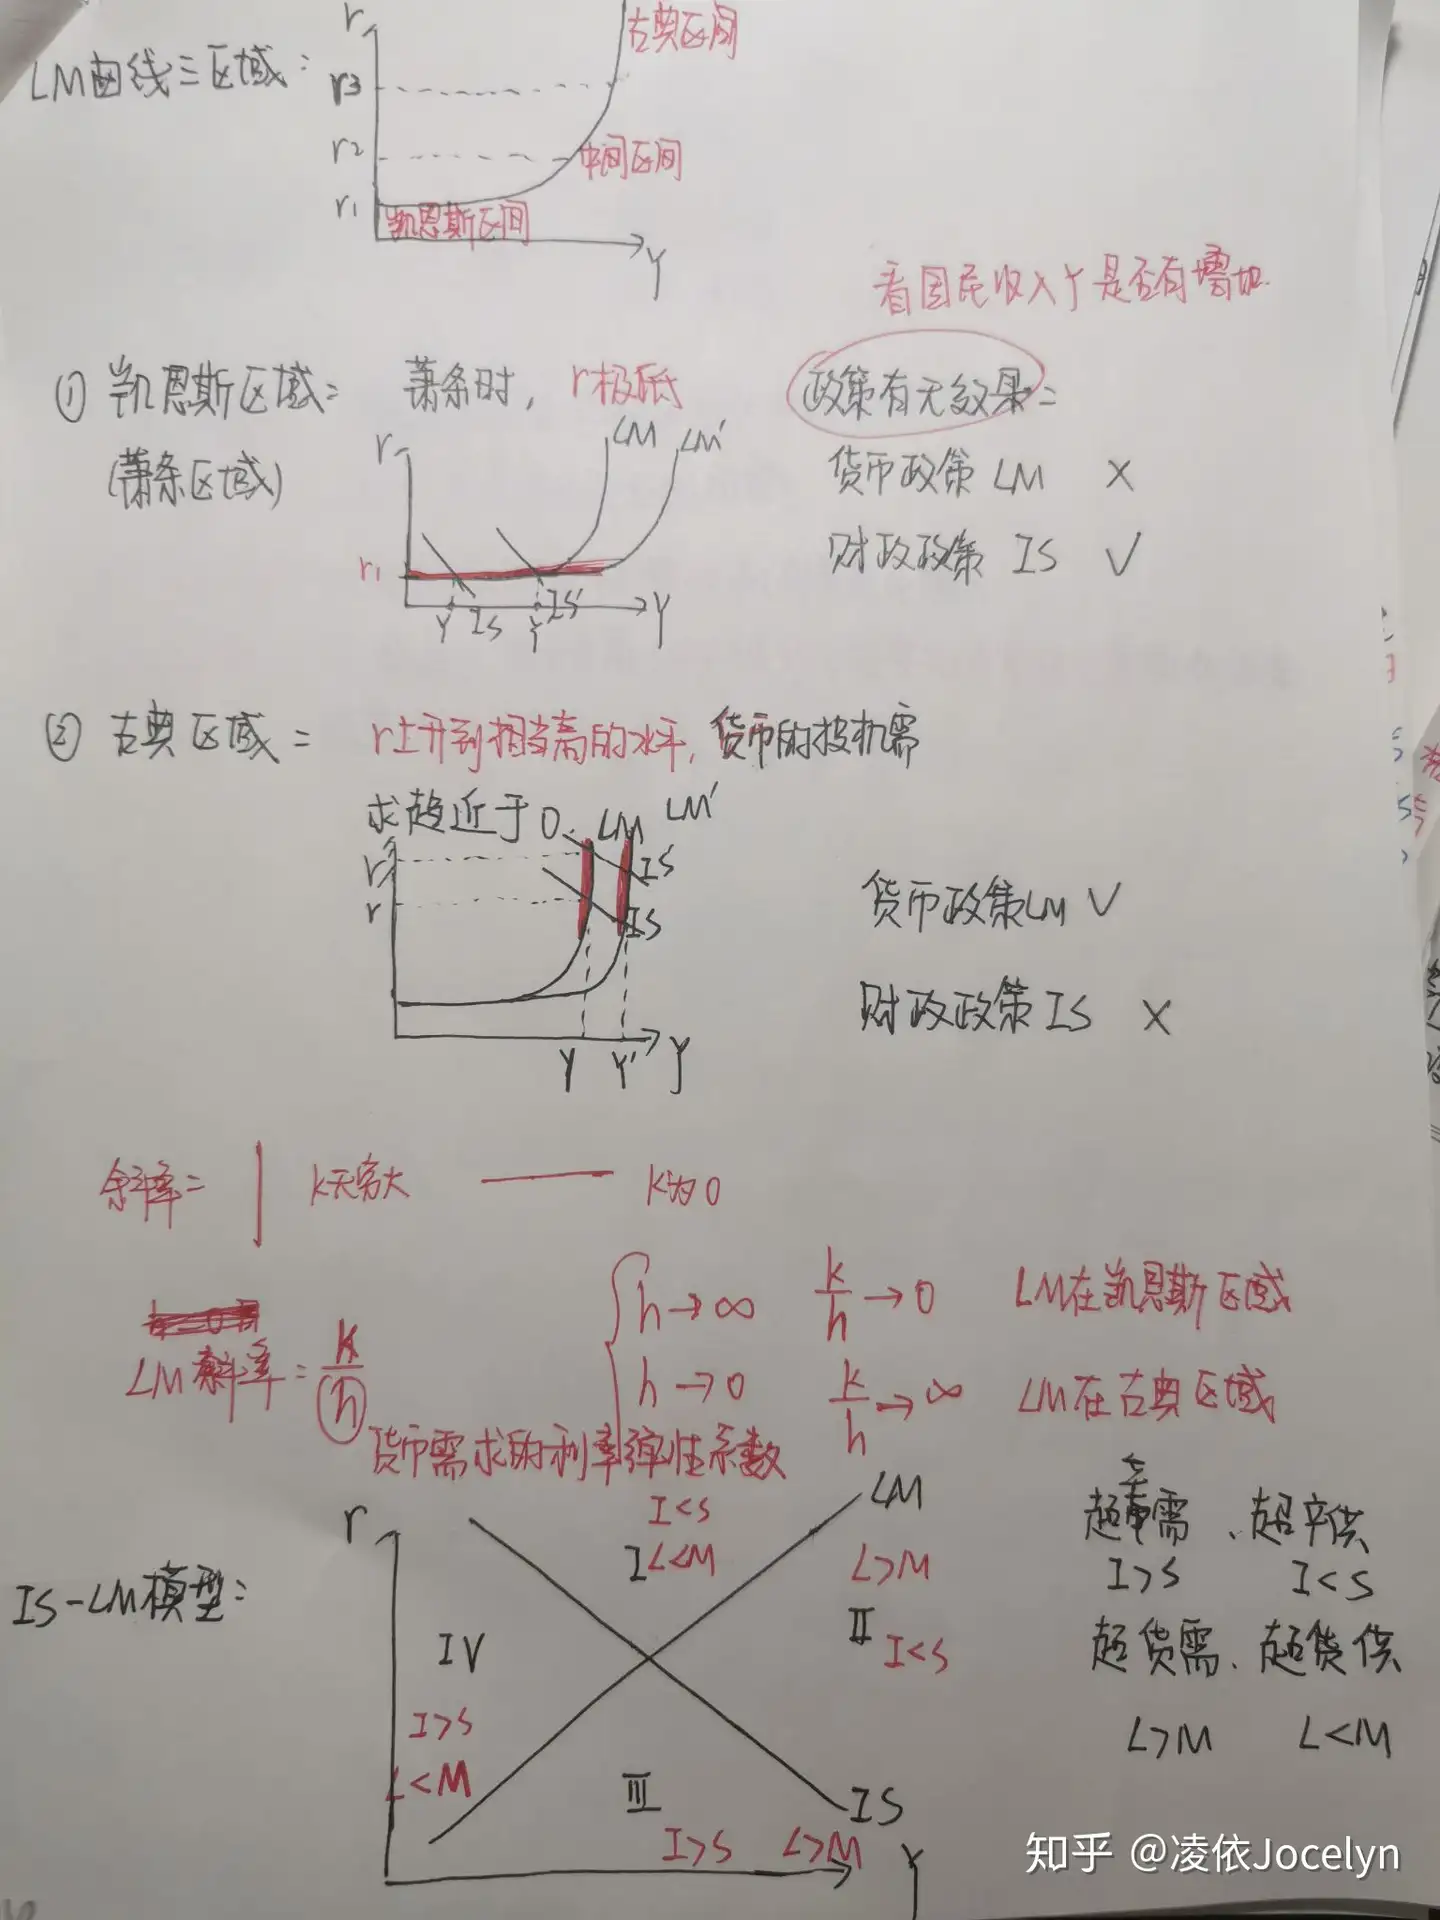 LM曲线三区域：
r
r3
r2
r1
古典区间
中间区间
凯恩斯区间
Y
看国民收入Y是否有增加
① 凯恩斯区域：
(萧条区域)
萧条时，r极低
政策有无效果：
货币政策 LM ×
财政政策 IS √
r
LM LM'
r1
Y IS Y' IS' Y
② 古典区域：
r上升到相当高的水平，货币的投机需
求趋近于0.
LM LM'
r' IS'
r IS
Y Y' y
货币政策LM √
财政政策 IS ×
斜率= | k无穷大 — k为0
LM斜率= k/h
货币需求的利率弹性系数
h→∞ k/h→0 LM在凯恩斯区域
h→0 k/h→∞ LM在古典区域
IS-LM模型：
r
LM
I<S
I L<M
L>M
II I<S
IV
I>S
L<M
III
I>S L>M
IS
Y
超产需、超产供
I>S I<S
超货需、超货供
L>M L<M
知乎 @凌依Jocelyn